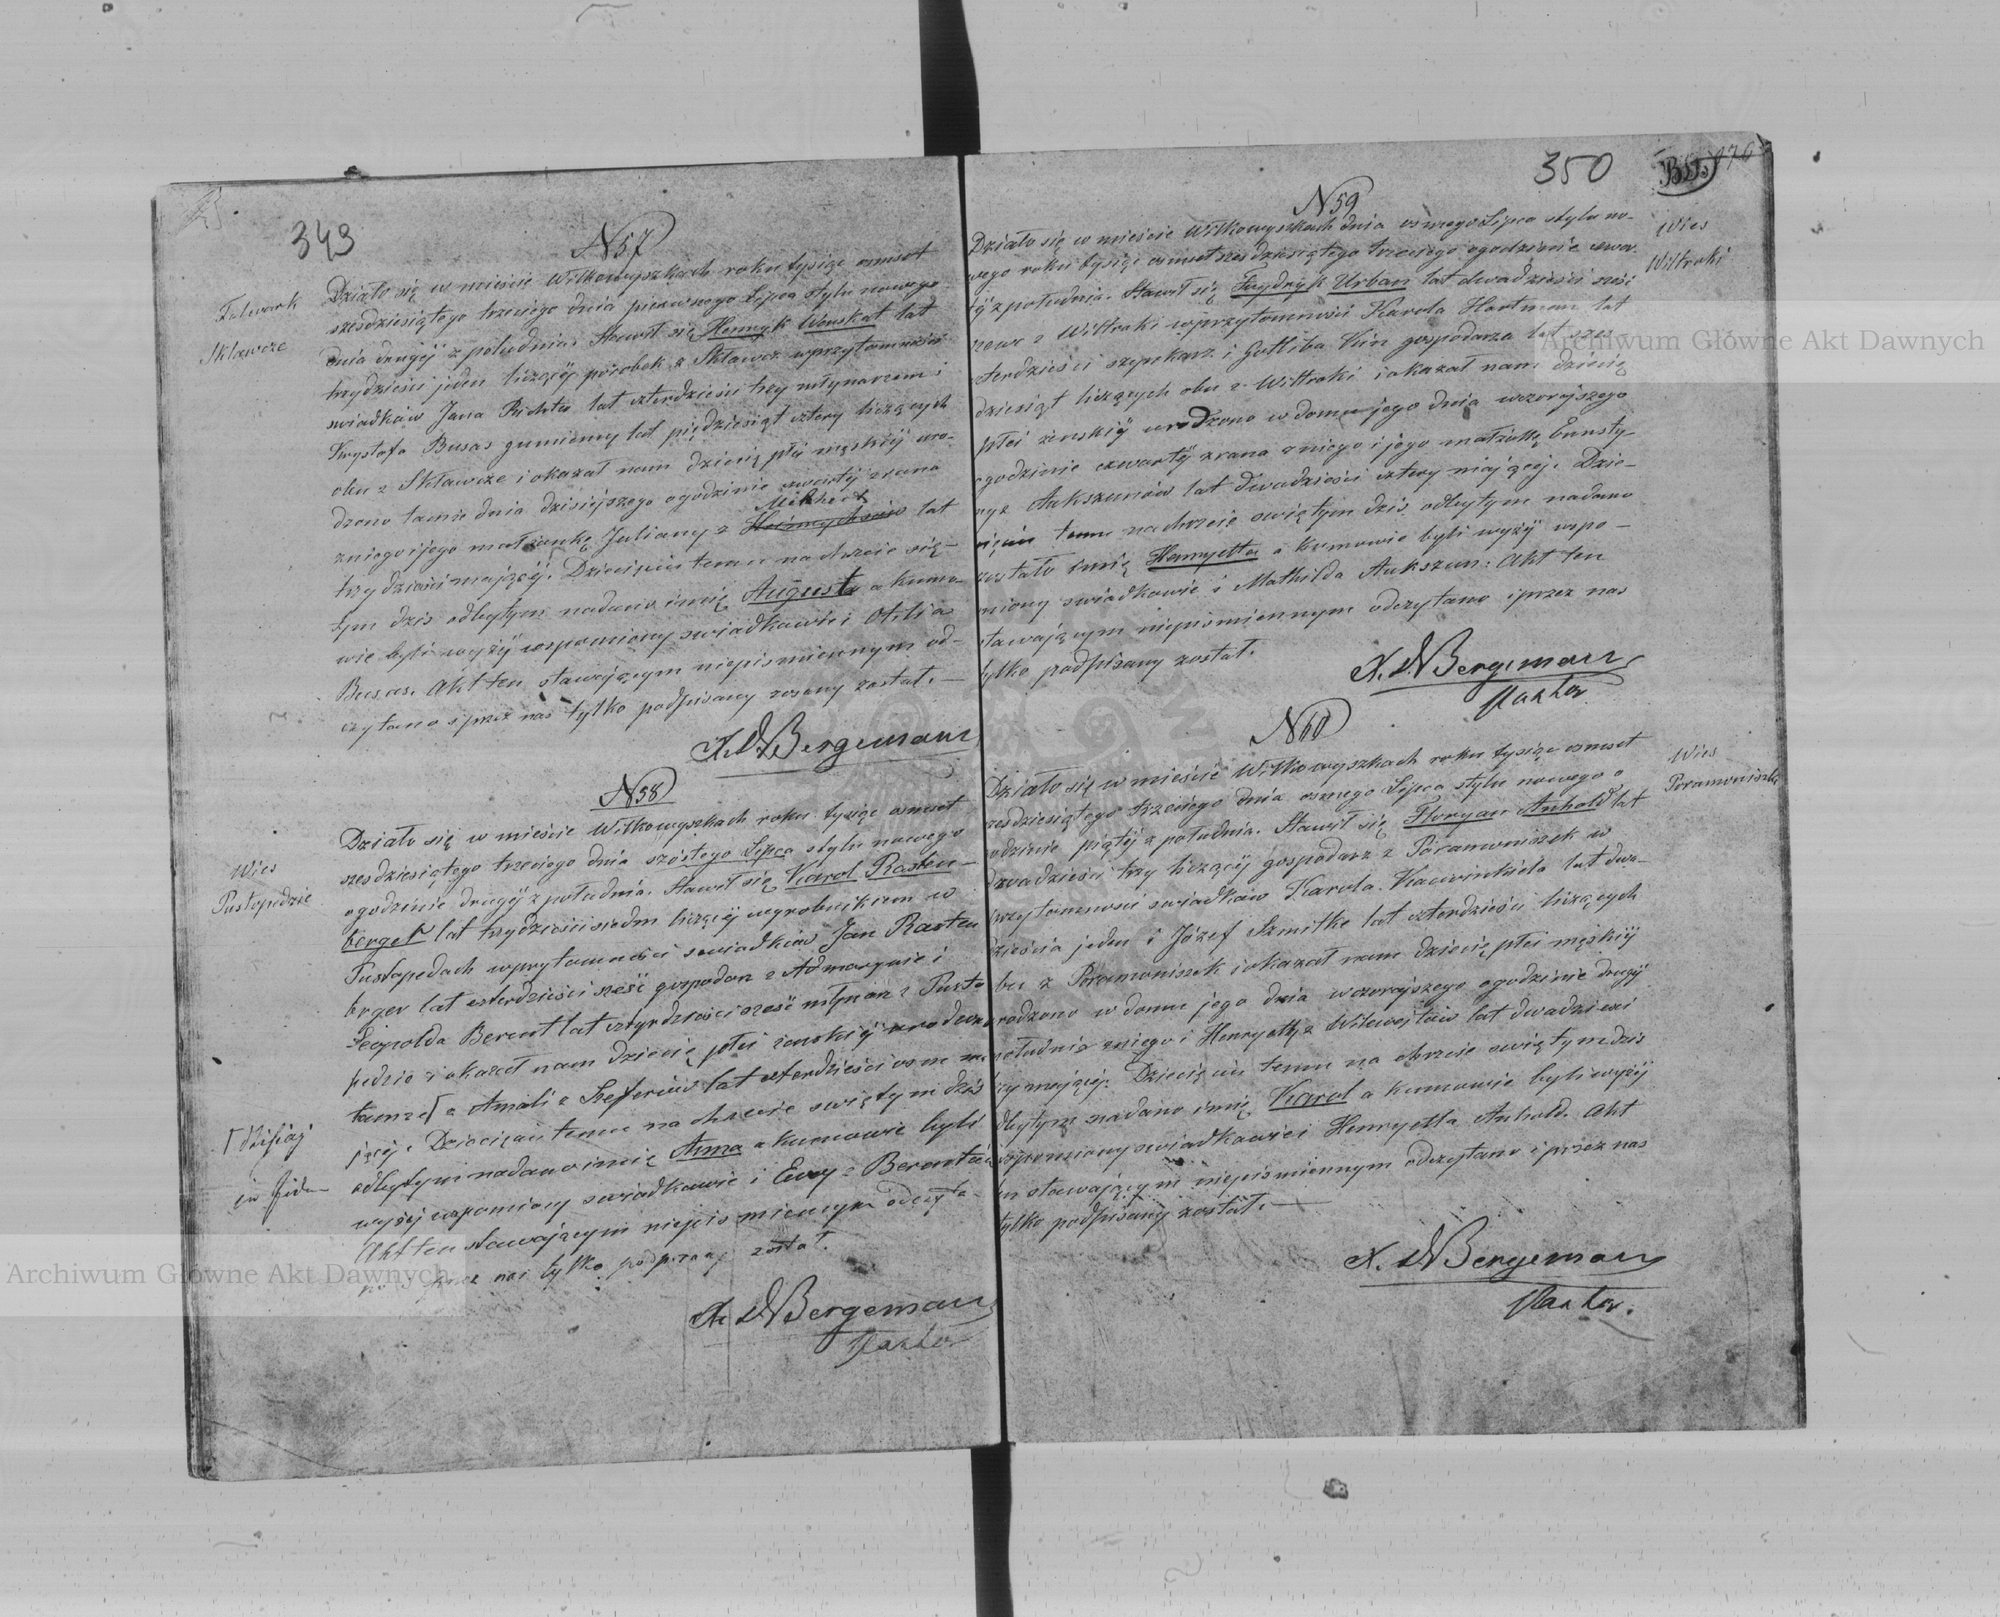 349
N57
Folwark
Skławcze
Działo się w mieście Wiłkowyszkach roku tysiąc osmset
szesdziesiątego trzeciego dnia pierwszego Lipca stylu nowego
dnia drugiéj z południa. Stawił się Henryk Wenskat lat
trzydzieści jeden liczący parobek z Skławcz w przytomności
swiadków Jana Richter lat czterdzieści trzy młynarzem i
Krystofa Busas gumienny lat pięćdziesiąt cztery liczących
obu z Skławcze i okazał nam dziecię płci męskiéj uro-
dzone tamże dnia dzisiejszego o godzinie czwartéj zrana
z niego i jego małżonkę Julianny z lat
trzydzieści mającéj. Dziecięciu temu na chrzcie świę-
tym dzis odbytym nadano imię August a kumo-
wie byli wyżéj wspomniony swiadkowie i Otilia
Busas. Akt ten stawającym niepismiennym od-
czytano i przez nas tylko podpisany został.
X. Bergemann
N58
Wies
Pustopedzie
Działo się w mieście Wiłkowyszkach roku tysiąc osmset
szesdziesiątego trzeciego dnia szóstego Lipca stylu nowego
o godzinie drugiéj z południa. Stawił się Karol Rasten-
berger lat trzydzieści siedm liczący wyrobnikiem w
Pustopedach w przytomności swiadków Jan Rasten
berger lat czterdzieści sześć gospodarz z i
Leopolda Berent lat czterdzieści sześć młynarz z Pusto
pedzie i okazał nam dziecię płci żeńskiéj urodzone
tamże z Amali z lat czterdzieści osm ma
jącéj. Dziecięciu temu na chrzcie świętym dziś
odbytym nadano imię Anna a kumowie byli
wyżéj wspomniony swiadkowie i Ewy z Berentów
Akt ten stawającym niepismiennym odczyta-
no i przez nas tylko podpisany został.
dzisiaj
X. Bergemann
Pastor
350
N59
Wies
Wiłtraki
Działo się w mieście Wiłkowyszkach dnia osmego Lipca stylu no-
wego roku tysiąc osmset szesdziesiątego trzeciego o godzinie czwar
téj z południa. Stawił się Frydryk Urban lat dwadzieścia sześć
z Wiłtraki w przytomności Karola Hartman lat
czterdzieści szynkarz i Gotliba Kun gospodarza lat szes
dziesiąt liczących obu z Wiłtraki i okazał nam dziecię
płci żeńskiéj urodzone w domu jego dnia wczorajszego
o godzinie czwartéj zrana z niego i jego małżonkę Ernsty-
ny z Aukszunów lat dwadzieścia cztery mającéj. Dzie-
cięciu temu na chrzcie swiętym dzis odbytym nadano
zostało imię Henryetta a kumowie byli wyżéj wspo-
mniony swiadkowie i Mathilda Aukszun. Akt ten
stawającym niepismiennym odczytano i przez nas
tylko podpisany został.
X. Bergemann
Pastor
N60
Wies
Poramoniszki
Działo się w mieście Wiłkowyszkach roku tysiąc osmset
szesdziesiątego trzeciego dnia osmego Lipca stylu nowego o
godzinie piątéj z południa. Stawił się Floryan Anhold lat
dwadzieścia trzy liczącéj gospodarz z Poramoniszek w
przytomności swiadków Karola lat dwa-
dzieścia jeden i Józef Szmitke lat czterdzieści liczących
obu z Poramoniszek i okazał nam dziecię płci męskiéj
urodzone w domu jego dnia wczorajszego o godzinie drugiéj
z południa z niego i Henryetty z lat dwadzieścia
trzy mającéj. Dziecięciu temu na chrzcie swiętym dzis
odbytym nadano imię Karol a kumowie byli wyżéj
wspomniony swiadkowie i Henryetta Anhold. Akt
ten stawającym niepismiennym odczytano i przez nas
tylko podpisany został.
X. Bergemann
Pastor.
Archiwum Główne Akt Dawnych
Archiwum Główne Akt Dawnych